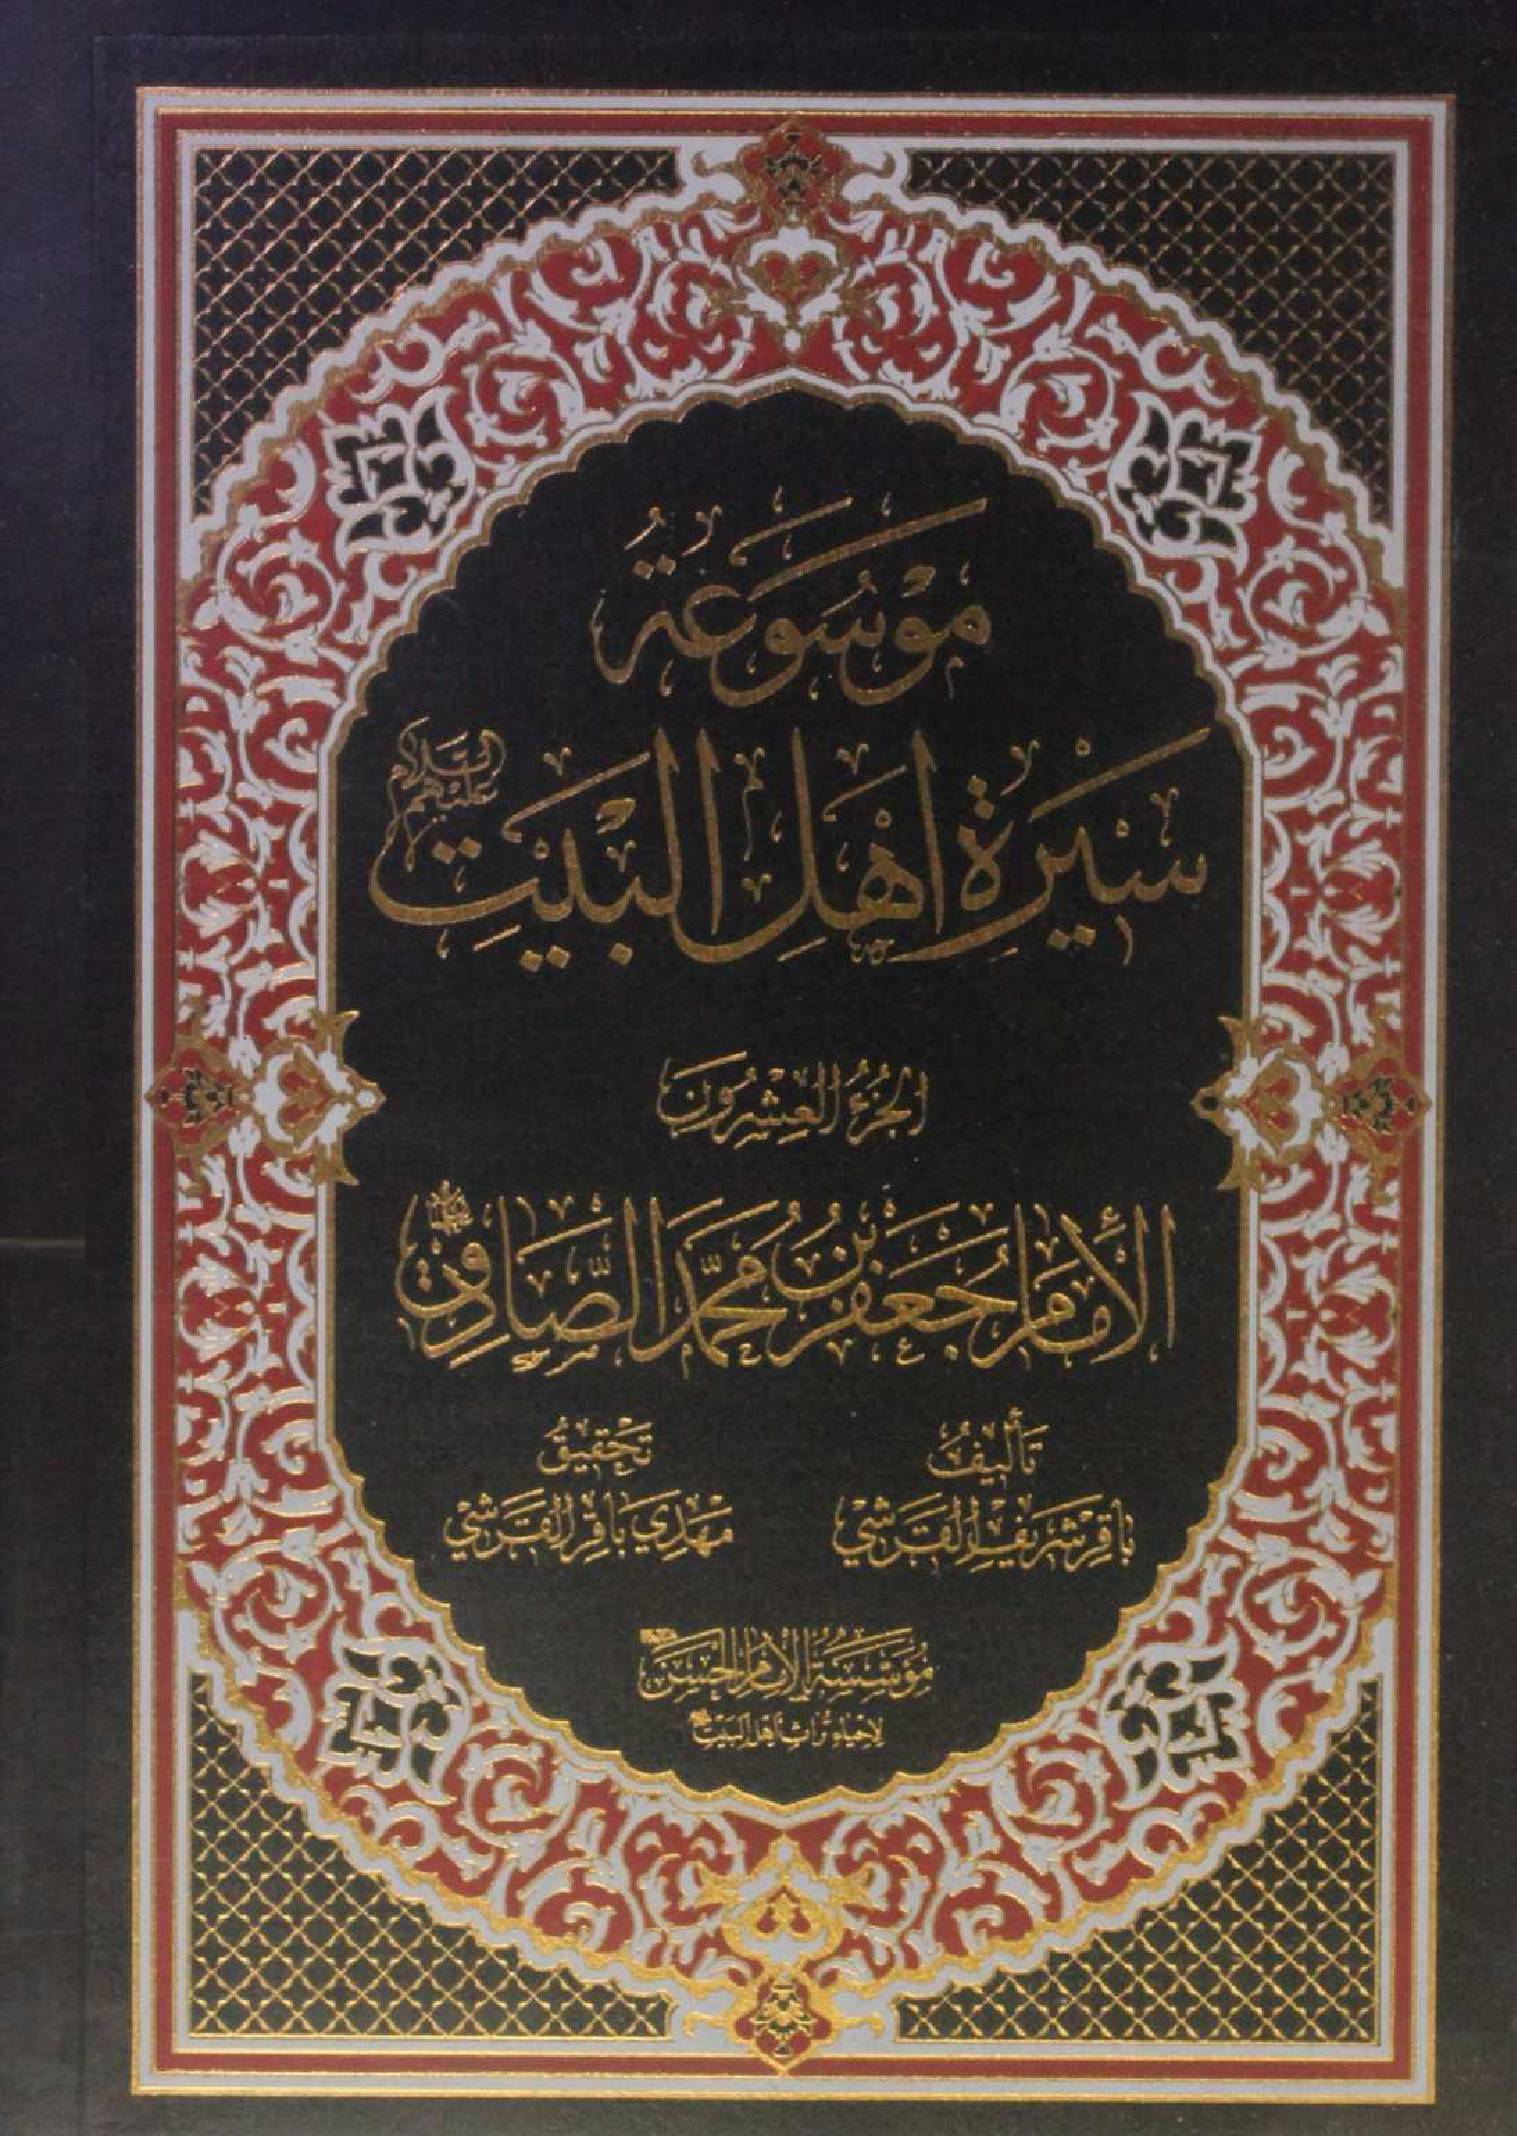 مَوْسُوعَةُ
سِيْرَةِ أَهْلِ الْبَيْتِ عَلَيْهِمُ السَّلَام
الجُزْءُ العِشْرُون
الإِمَامُ جَعْفَرُ بْنُ مُحَمَّدٍ الصَّادِقُ
تَأْلِيفُ
بَاقِر شَرِيفِ القَرَشِي
تَحْقِيقُ
مَهْدِي بَاقِر القَرَشِي
مُؤَسَّسَةُ الإِمَامِ الحَسَنِ
لِإِحْيَاءِ تُرَاثِ أَهْلِ البَيْتِ